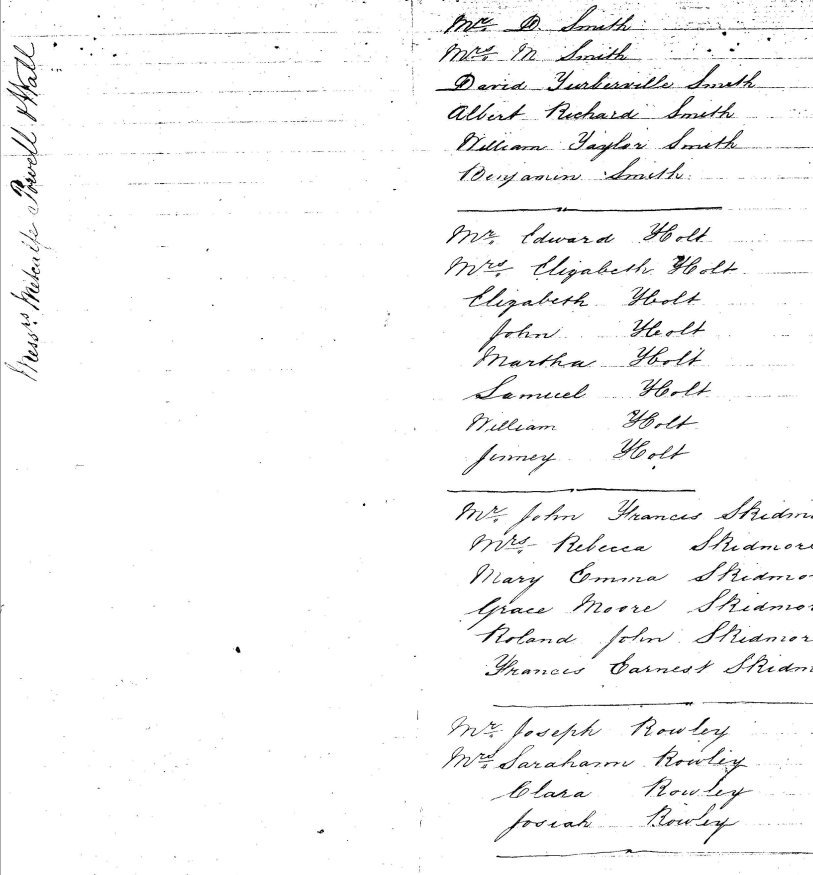 Messrs Metcalfe Powell & Wall
Mr. D. Smith
Mrs M Smith
David Turberville Smith
Albert Richard Smith
William Taylor Smith
Benjamin Smith
Mr. Edward Holt
Mrs. Elizabeth Holt
Elizabeth Holt
John Holt
Martha Holt
Samuel Holt
William Holt
Jinney Holt
Mr. John Francis Skidm
Mrs. Rebecca Skidmore
Mary Emma Skidmo
Grace Moore Skidmo
Roland John Skidmor
Francis Earnest Skidm
Mr. Joseph Rowley
Mrs. Sarahann Rowley
Clara Rowley
Josiah Rowley